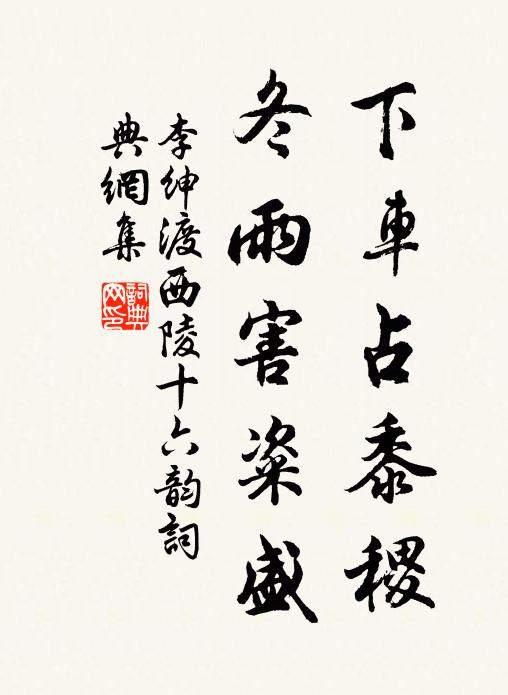 下車占黍稷
冬雨害粢盛
李紳渡西陵十六韵詞
典網集
詞典網印